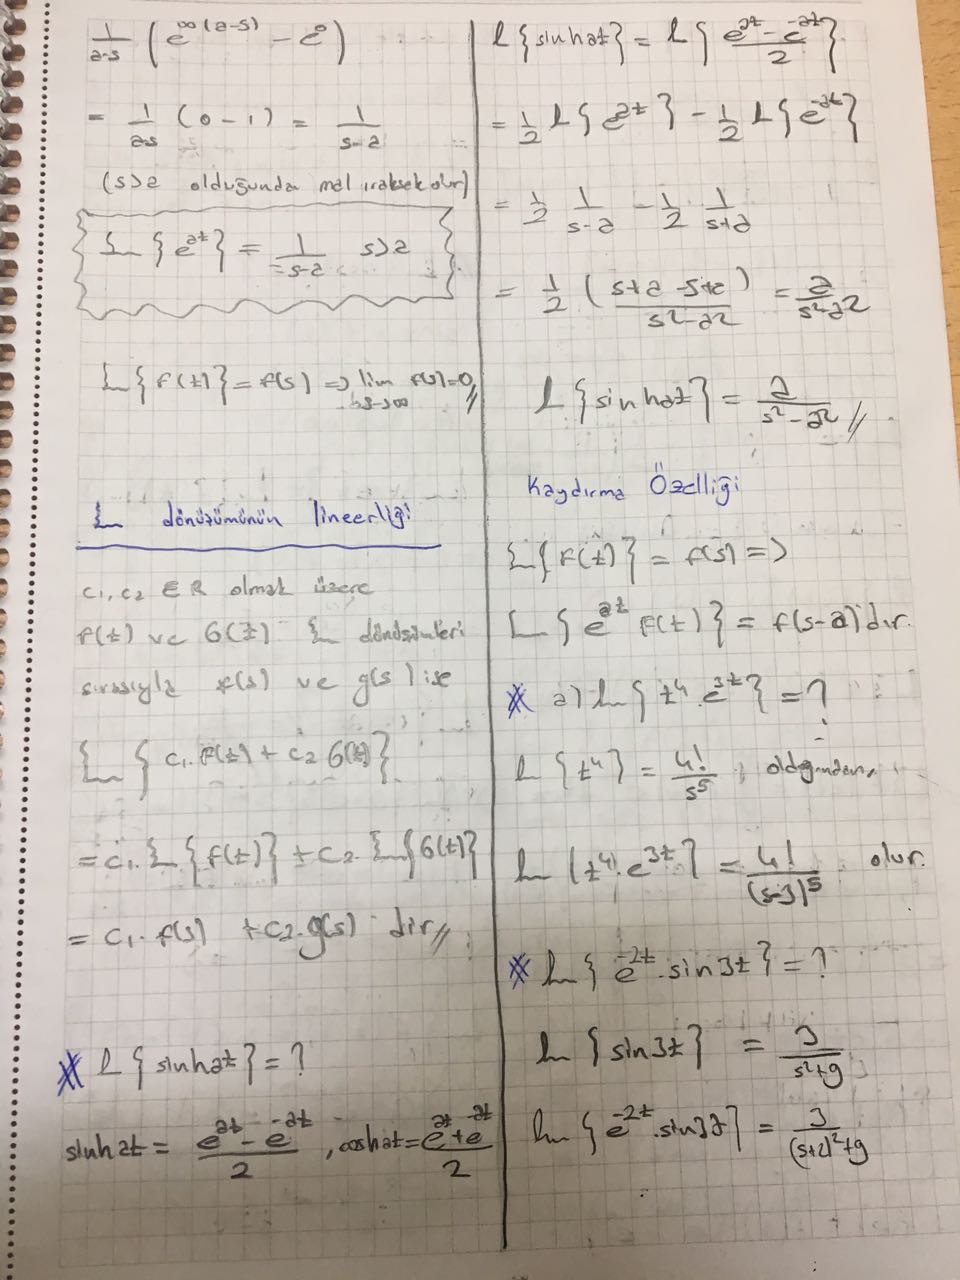 1/(a-s) (e^∞(a-s) - e^0)
= 1/(a-s) (0-1) = 1/(s-a)
(s>a olduğundan ıraksak olur)
L{e^at} = 1/(s-a) s>a
L{F(t)} = f(s) => lim s->∞ f(s)=0//
L dönüşümünün lineerliği
c1, c2 ∈ R olmak üzere
F(t) ve G(t) L dönüşümleri
sırasıyla f(s) ve g(s) ise
L{c1.F(t) + c2 G(t)}
= c1. L{F(t)} + c2. L{G(t)}
= c1. f(s) + c2. g(s) dir//
* L{sinhat} = ?
sinhat = (e^at - e^-at)/2 , coshat = (e^at + e^-at)/2
L{sinhat} = L{(e^at - e^-at)/2}
= 1/2 L{e^at} - 1/2 L{e^-at}
= 1/2 1/(s-a) - 1/2 . 1/(s+a)
= 1/2 ((s+a-s+a)/(s²-a²)) = a/(s²-a²)
L{sinhat} = a/(s²-a²)//
Kaydırma Özelliği
L{F(t)} = f(s) =>
L{e^at F(t)} = f(s-a) dır.
* a) L{t^4 . e^3t} = ?
L{t^4} = 4!/s^5 , olduğundan,
L{t^4 . e^3t} = 4!/(s-3)^5 olur.
* L{e^-2t . sin3t} = ?
L{sin3t} = 3/(s²+9)
L{e^-2t . sin3t} = 3/((s+2)²+9)